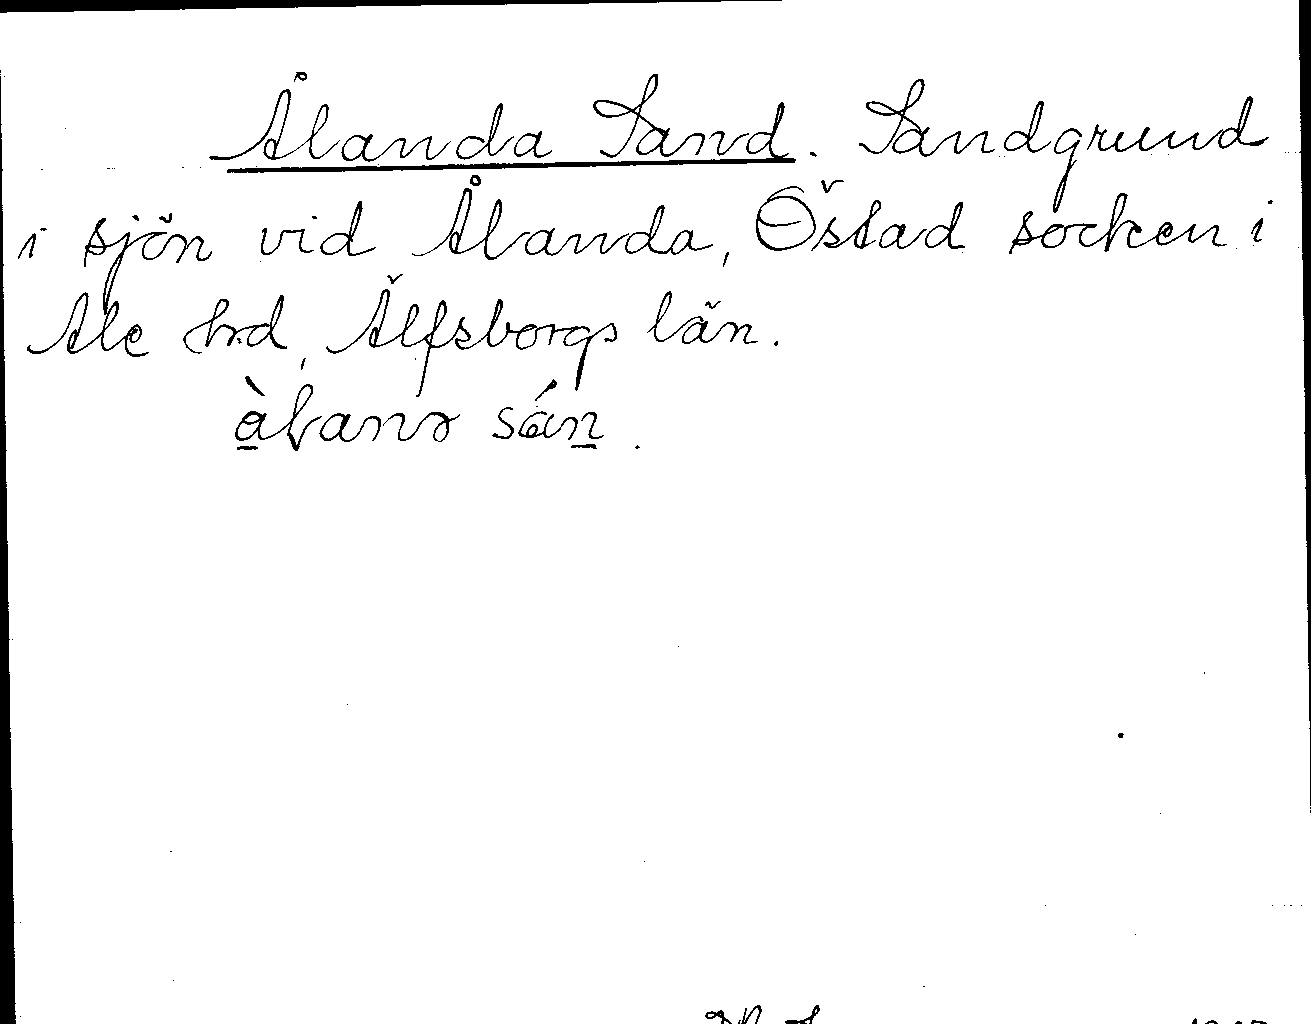 Ålanda Sand. Sandgrund
i sjön vid Ålanda, Östad socken i
Ale hrd, Älfsborgs län.